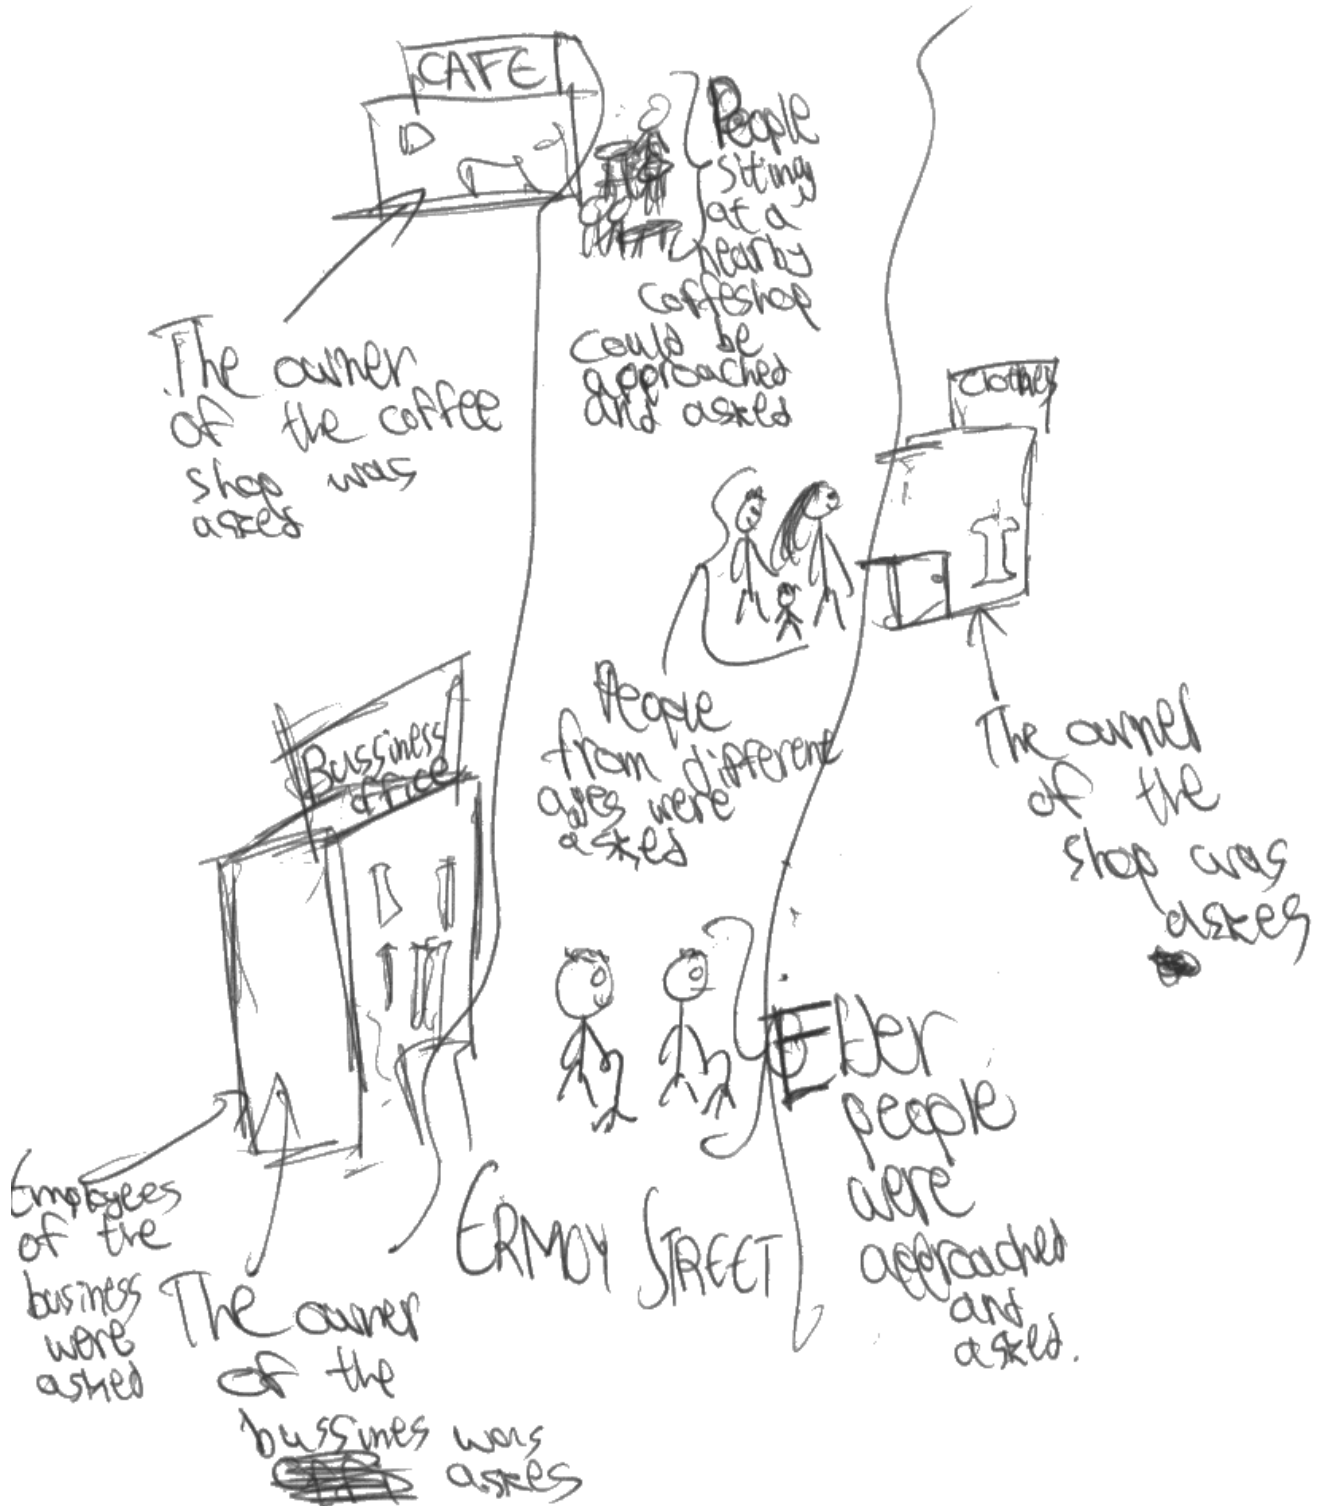 CAFE
People
sitting
at a
nearby
coffeshop
could be
approached
and asked
The owner
of the coffee
shop was
asked
Clothes
People
from different
ages were
asked
The owner
of the
shop was
askes
Bussiness
office
Elder
people
were
approached
and
asked.
Employees
of the
business
were
asked
The owner
of the
bussines was
askes
ERMOY STREET